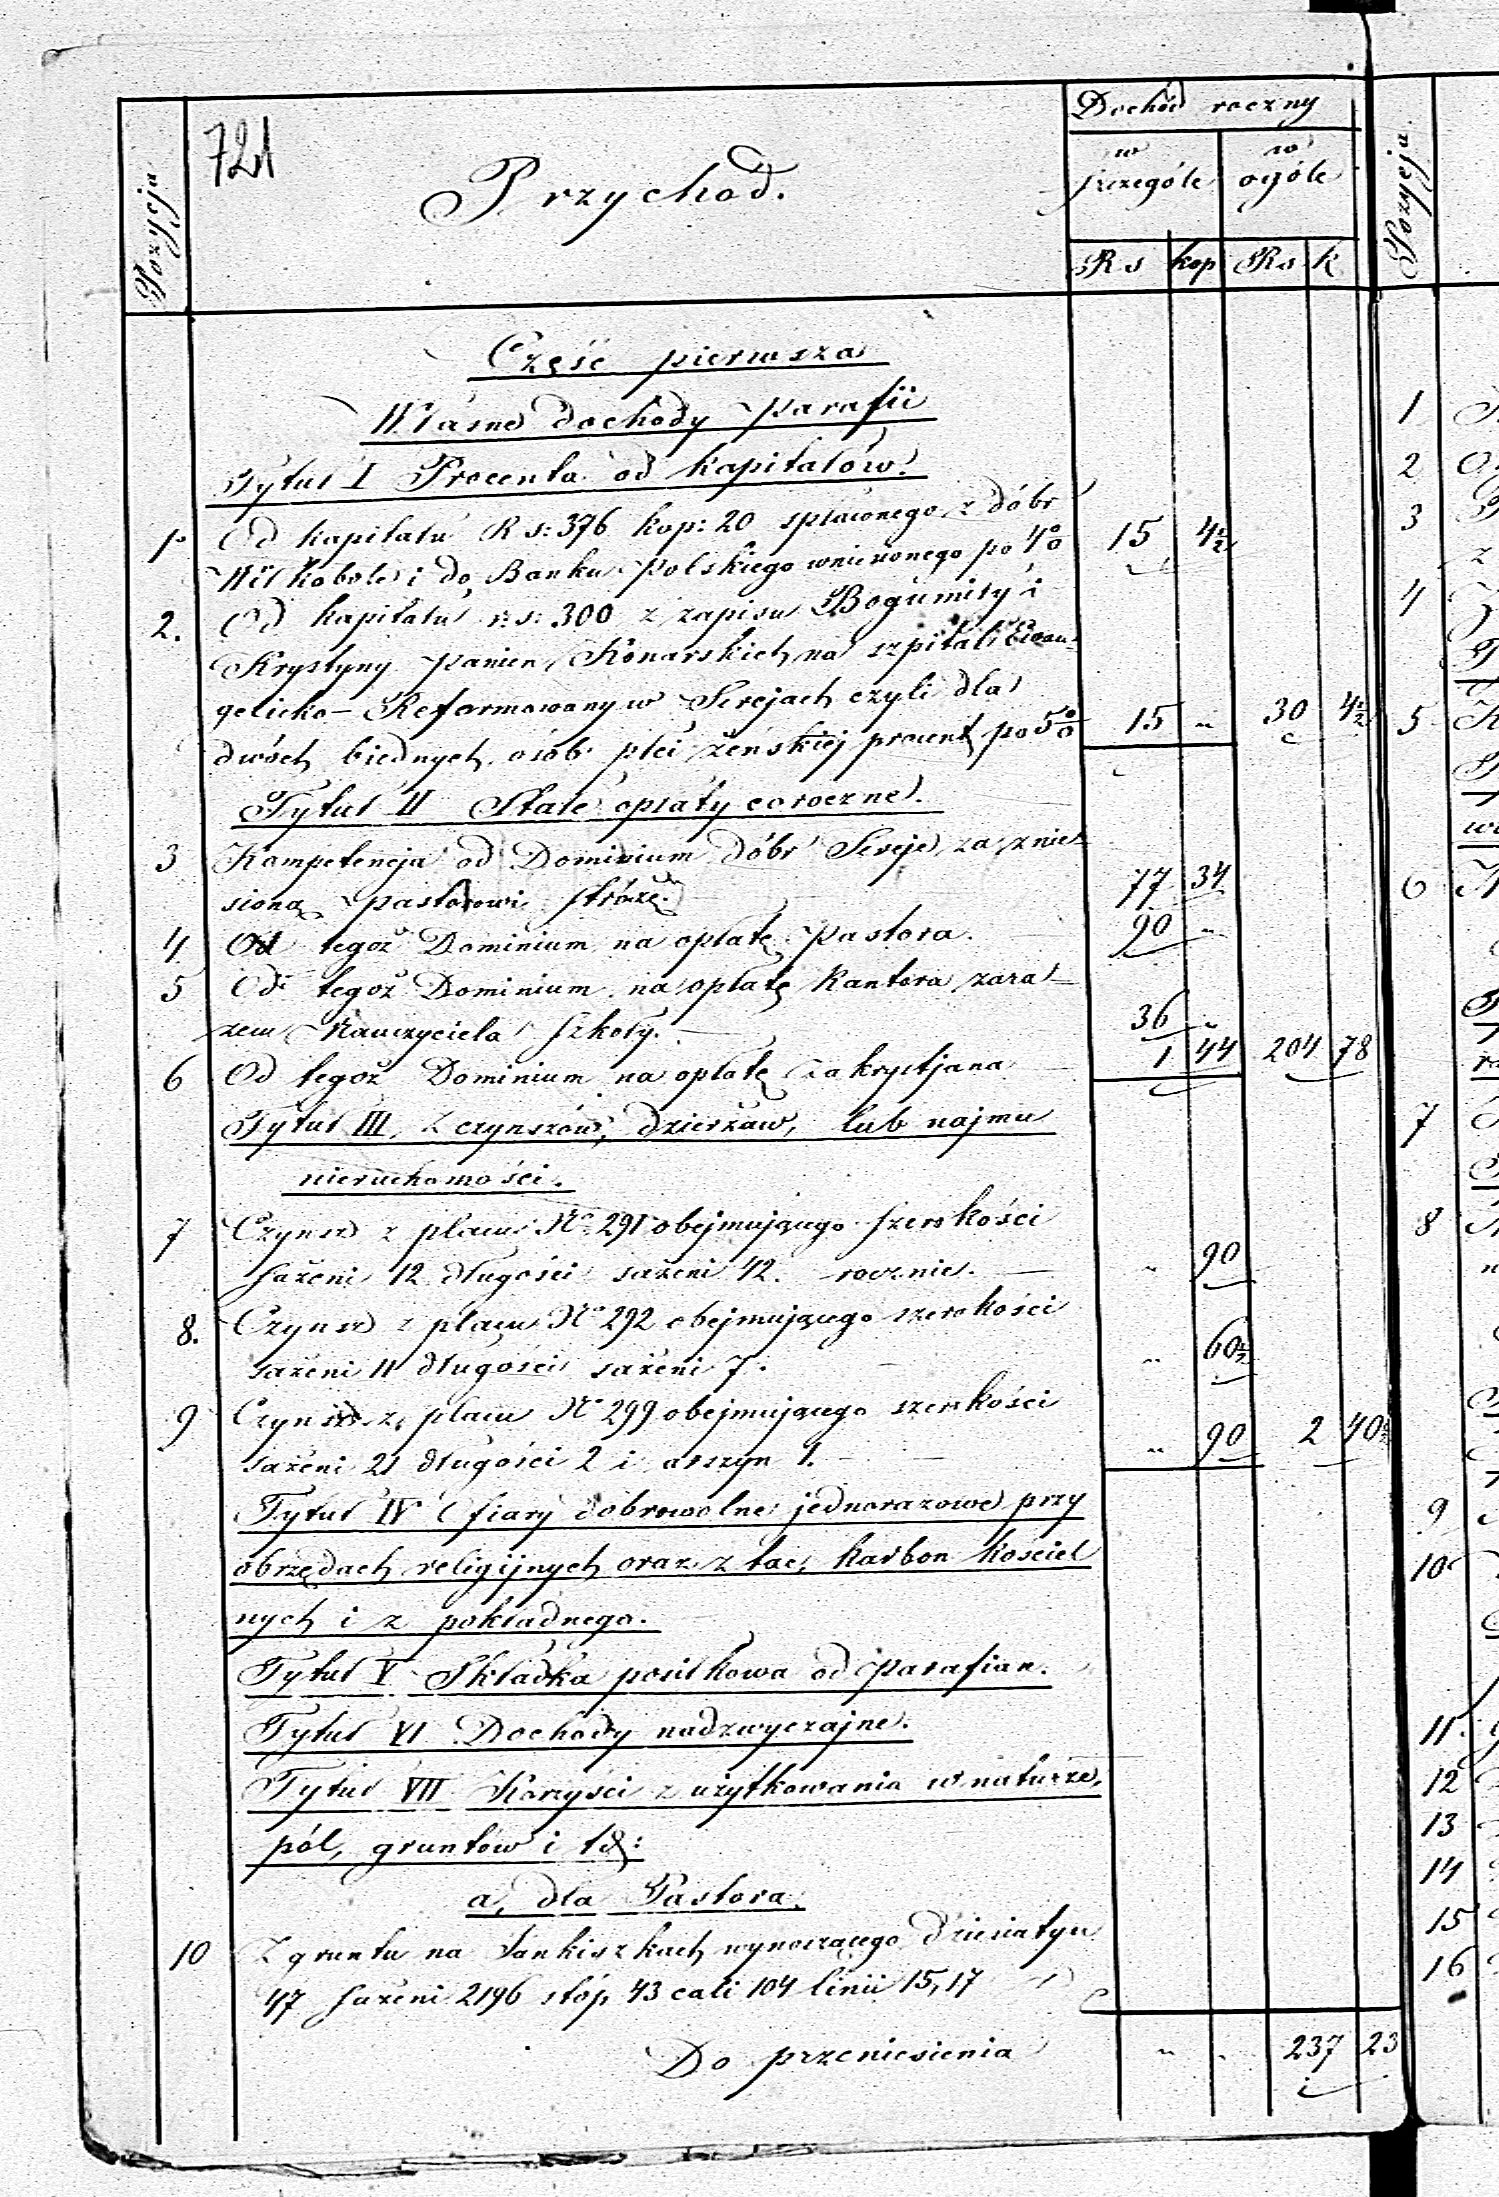 721
Pozycja
Przychod.
Dochód roczny
w szczególe
w ogóle
Rs kop Rs k
Pozycja
Część pierwsza
Własne dochody Parafii
Tytuł I Procenta od kapitałów.
1o Od kapitału Rs: 376 kop: 20 spłaconego z dóbr
Wiłkobole i do Banku Polskiego wniesionego po 4% 15 4½
2. Od kapitału r: s: 300 z zapisu Bogumiły i
Krystyny Panien Konarskich na szpital Ewan-
gelicko-Reformowany w Serejach czyli dla
dwóch biednych osób płci żeńskiej procent po 5% 15 " 30 4½
Tytuł II Stałe opłaty coroczne.
3 Kompetencja od Dominium dóbr Sereje za znie-
sioną pastorowi stróżę. 77 34
4 Od tegoż Dominium na opłatę Pastora. 90 "
5 Od tegoż Dominium na opłatę Kantora zara-
zem Nauczyciela szkoły. 36 "
6 Od tegoż Dominium na opłatę zakrystjana 1 44 204 78
Tytuł III. Z czynszów, dzierżaw, lub najmu
nieruchomości.
7 Czynsz z placu No 291 obejmującego szerokości
sażeni 12 długości sażeni 42. rocznie. " 90
8. Czynsz z placu No 292 obejmującego szerokości
sażeni 11 długości sażeni 7. " 60½
9 Czynsz z placu No 299 obejmującego szerokości
sażeni 21 długości 2 i arszyn 1. " 90 2 40½
Tytuł IV Ofiary dobrowolne jednorazowe przy
obrzędach religijnych oraz z tac, karbon kościel
nych i z pokładnego.
Tytuł V Składka posiłkowa od Parafian.
Tytuł VI Dochody nadzwyczajne.
Tytuł VII Korzyści z użytkowania w naturze,
pól, gruntów i td:
a, dla Pastora.
10 Z gruntu na Jankiszkach wynoszącego dziesiatyn
47 sażeni 2196 stóp 43 cali 104 linii 15,17
Do przeniesienia " " 237 23
1
2
3
4
5
6
7
8
9
10
11.
12
13
14
15
16